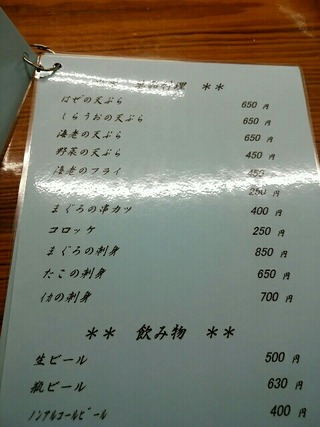 料理 ＊＊
はぜの天ぷら 650 円
しらうおの天ぷら 650 円
海老の天ぷら 650 円
野菜の天ぷら 450 円
海老のフライ 450
250 円
まぐろの串カツ 400 円
コロッケ 250 円
まぐろの刺身 850 円
たこの刺身 650 円
イカの刺身 700 円
＊＊ 飲み物 ＊＊
生ビール 500 円
瓶ビール 630 円
ノンアルコールビール 400 円